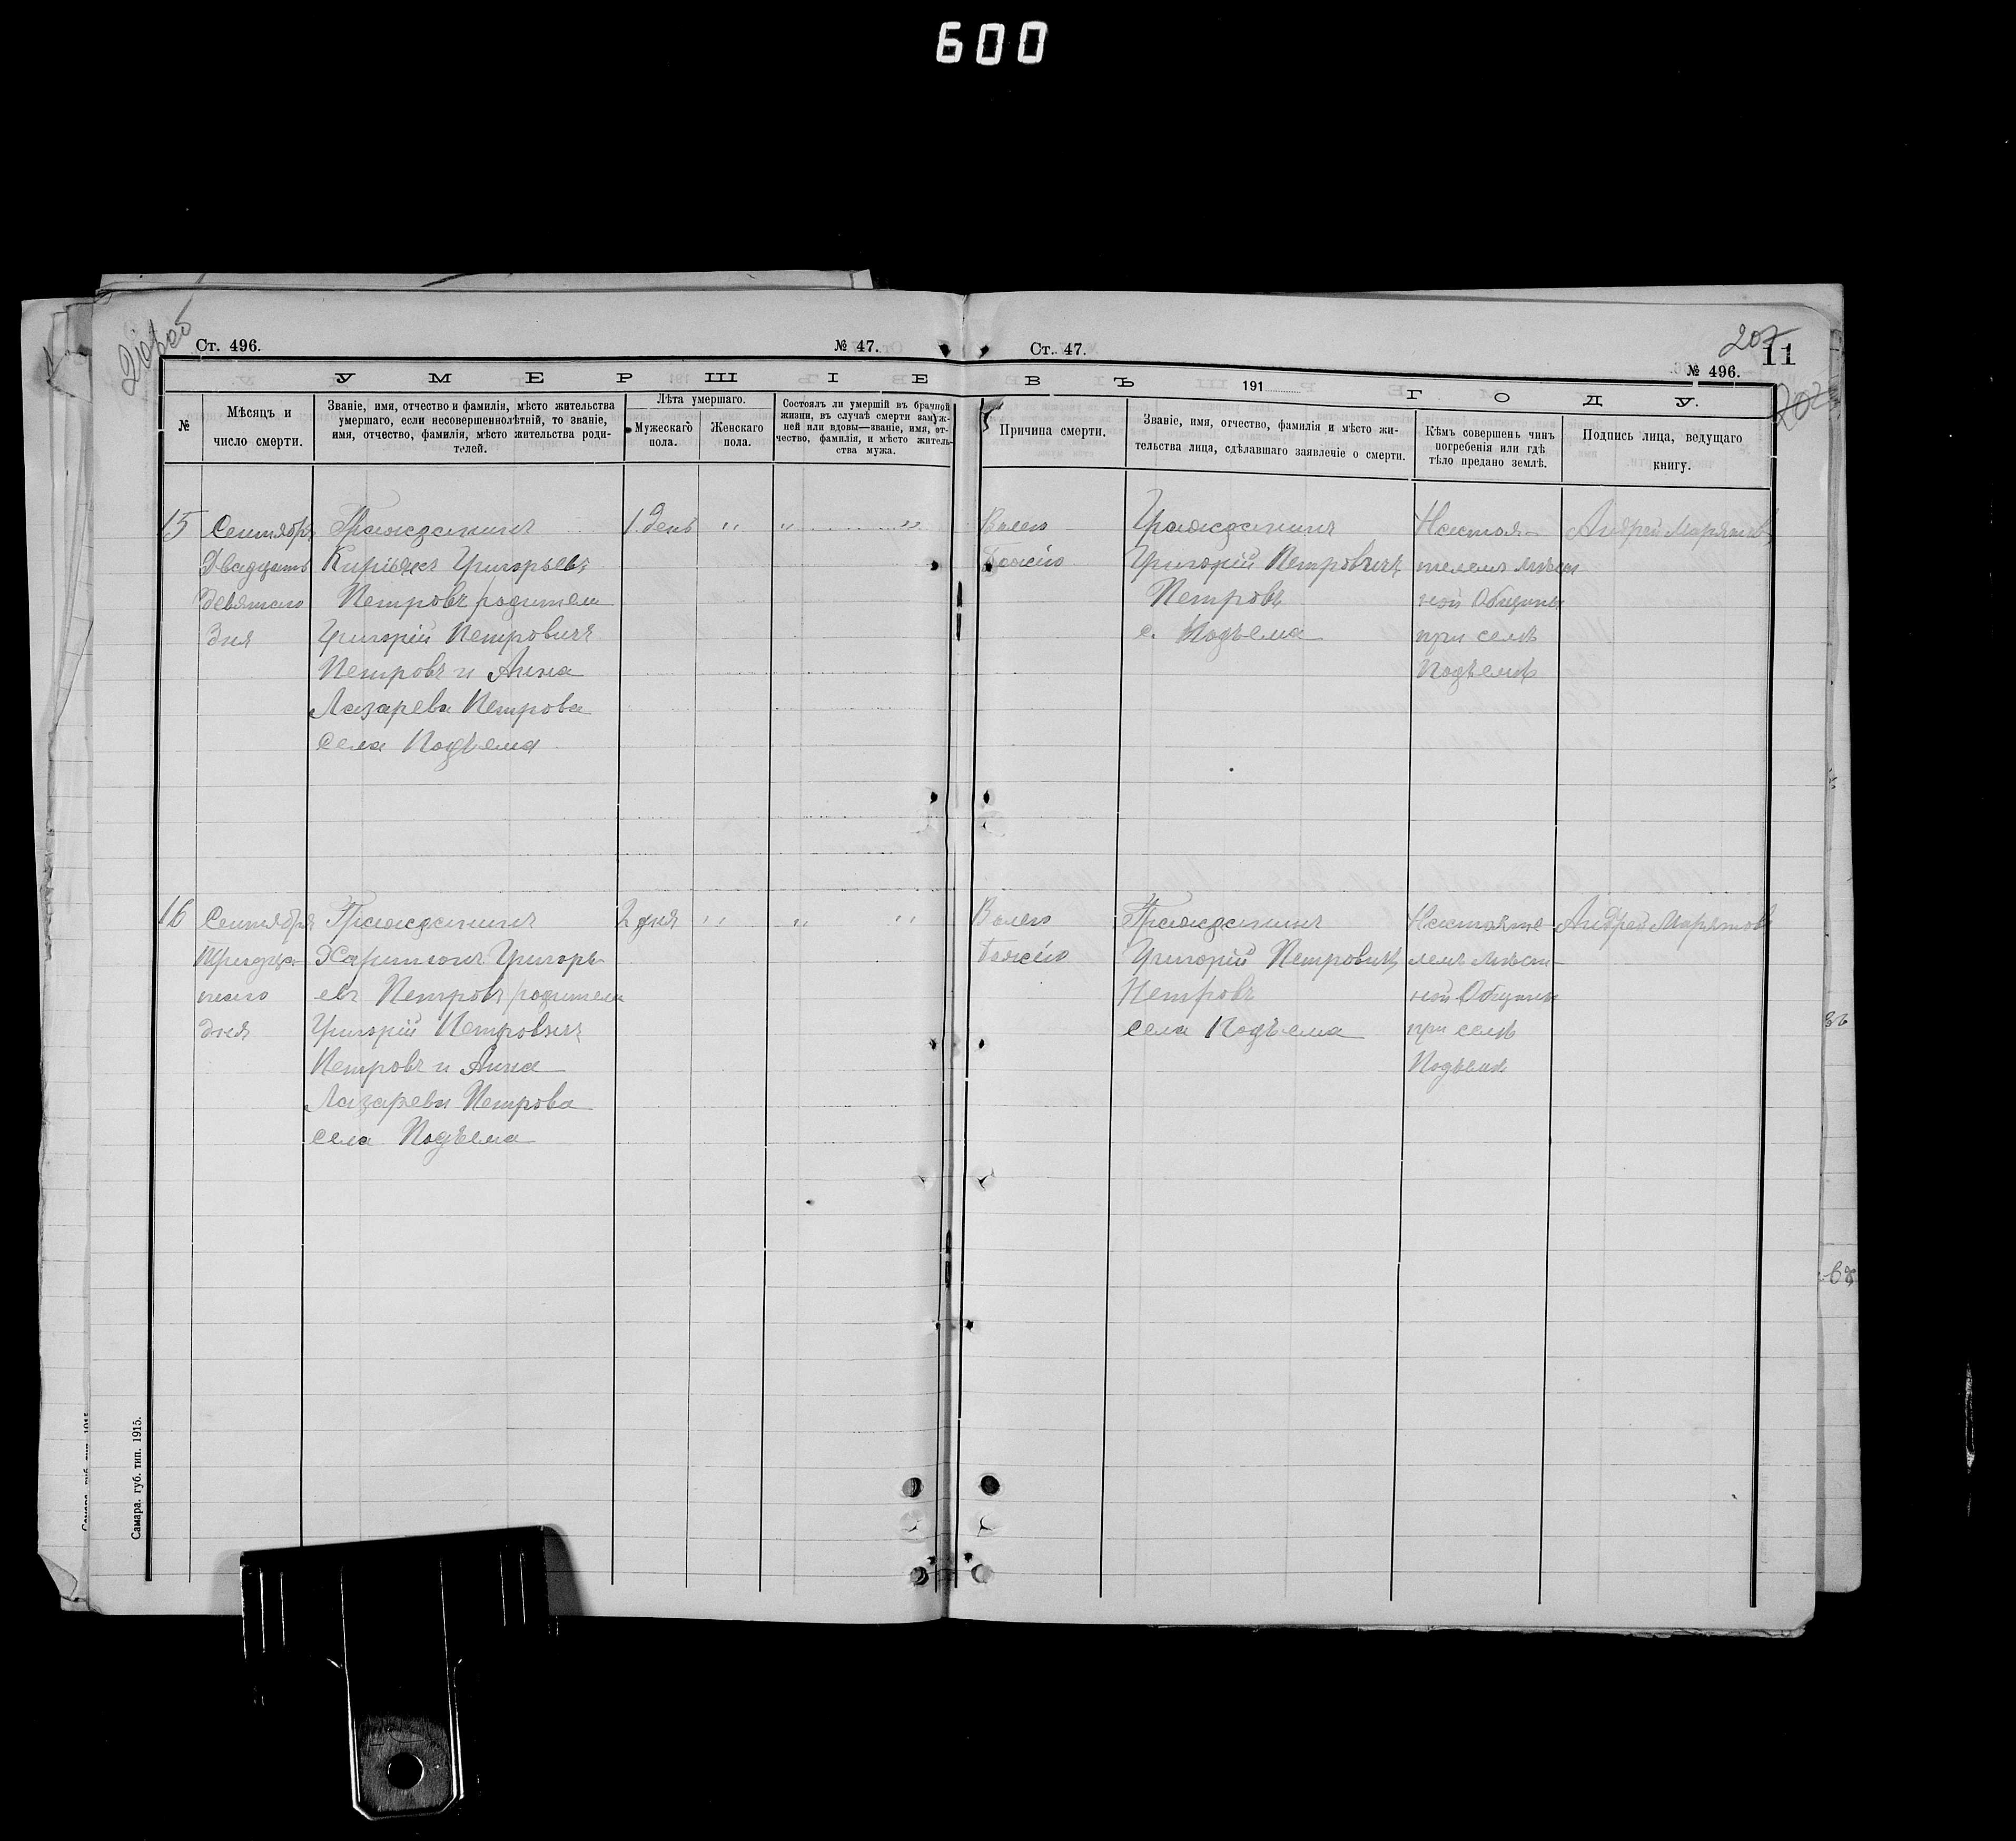 600
Ст. 496.
№ 47.
Ст. 47.
207
11
№ 496.
202
УМЕРШІЕ
ВЪ 191 ГОДУ.
№
Мѣсяцъ и
число смерти.
Званіе, имя, отчество и фамилія, мѣсто жительства
умершаго, если несовершеннолѣтній, то званіе,
имя, отчество, фамилія, мѣсто жительства роди-
телей.
Лѣта умершаго.
Мужескаго
пола.
Женскаго
пола.
Состоялъ ли умершій въ брачной
жизни, въ случаѣ смерти замуж-
ней или вдовы—званіе, имя, от-
чество, фамилія, и мѣсто житель-
ства мужа.
Причина смерти.
Званіе, имя, отчество, фамилія и мѣсто жи-
тельства лица, сдѣлавшаго заявленіе о смерти.
Кѣмъ совершенъ чинъ
погребенія или гдѣ
тѣло предано землѣ.
Подпись лица, ведущаго
книгу.
15
Сентября
Двадцать
девятаго
дня
Гражданинъ
Григорьевъ
Петровъ родители
Григорій Петровичъ
Петровъ и Анна
Лазарева Петрова
села Подъема
1. день
" " "
Волею
Божіею
Гражданинъ
Григорій Петровичъ
Петровъ
с. Подъема
Настоя-
телемъ мѣст
ной Общины
при селѣ
Подъемѣ
Андрей
16
Сентября
Тридца-
таго
дня
Гражданинъ
Харитонъ Григорь
евъ Петровъ родители
Григорій Петровичъ
Петровъ и Анна
Лазарева Петрова
села Подъема
2 дня
" " "
Волею
Божіею
Гражданинъ
Григорій Петровичъ
Петровъ
села Подъема
Настояте
лемъ мѣст-
ной Общины
при селѣ
Подъемѣ
Андрей
Самара. губ. тип. 1915.